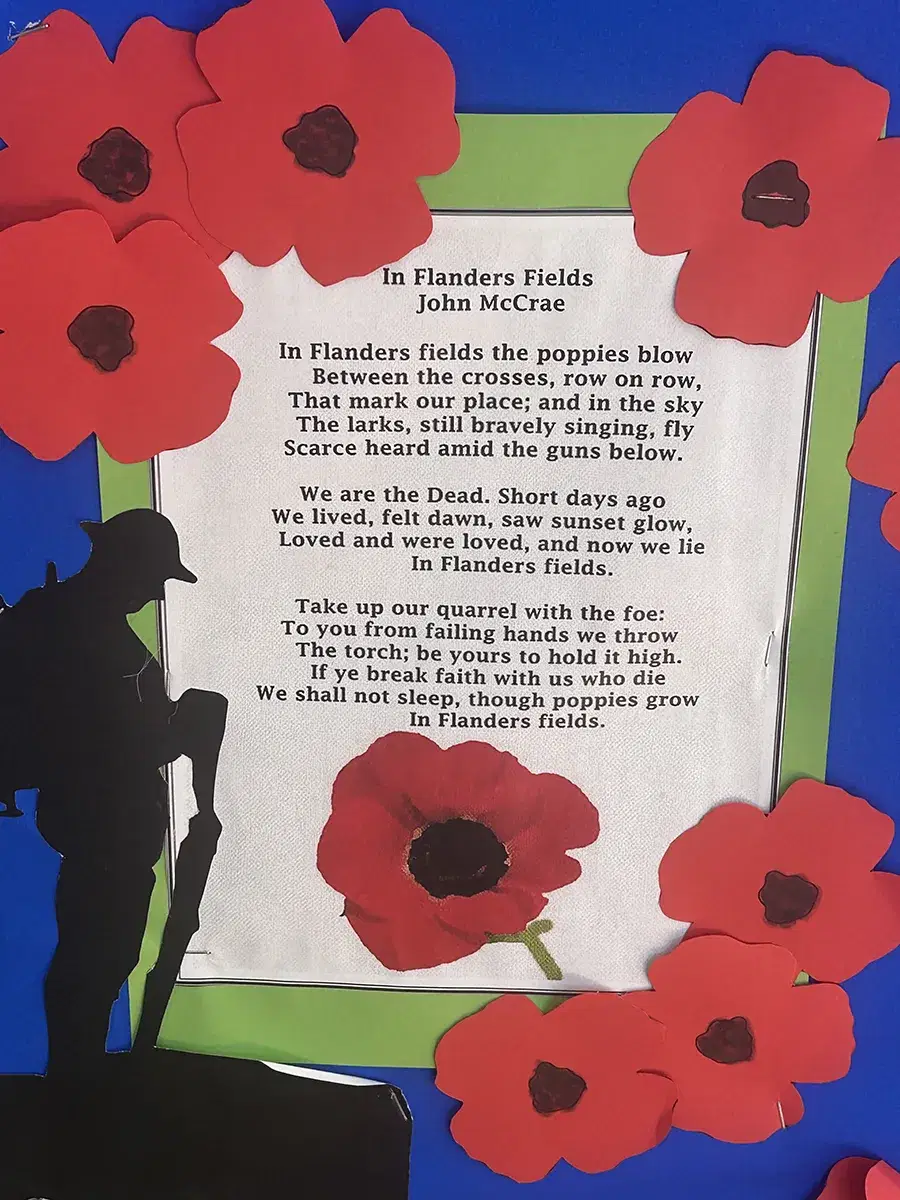 In Flanders Fields
John McCrae
In Flanders fields the poppies blow
Between the crosses, row on row,
That mark our place; and in the sky
The larks, still bravely singing, fly
Scarce heard amid the guns below.
We are the Dead. Short days ago
We lived, felt dawn, saw sunset glow,
Loved and were loved, and now we lie
In Flanders fields.
Take up our quarrel with the foe:
To you from failing hands we throw
The torch; be yours to hold it high.
If ye break faith with us who die
We shall not sleep, though poppies grow
In Flanders fields.